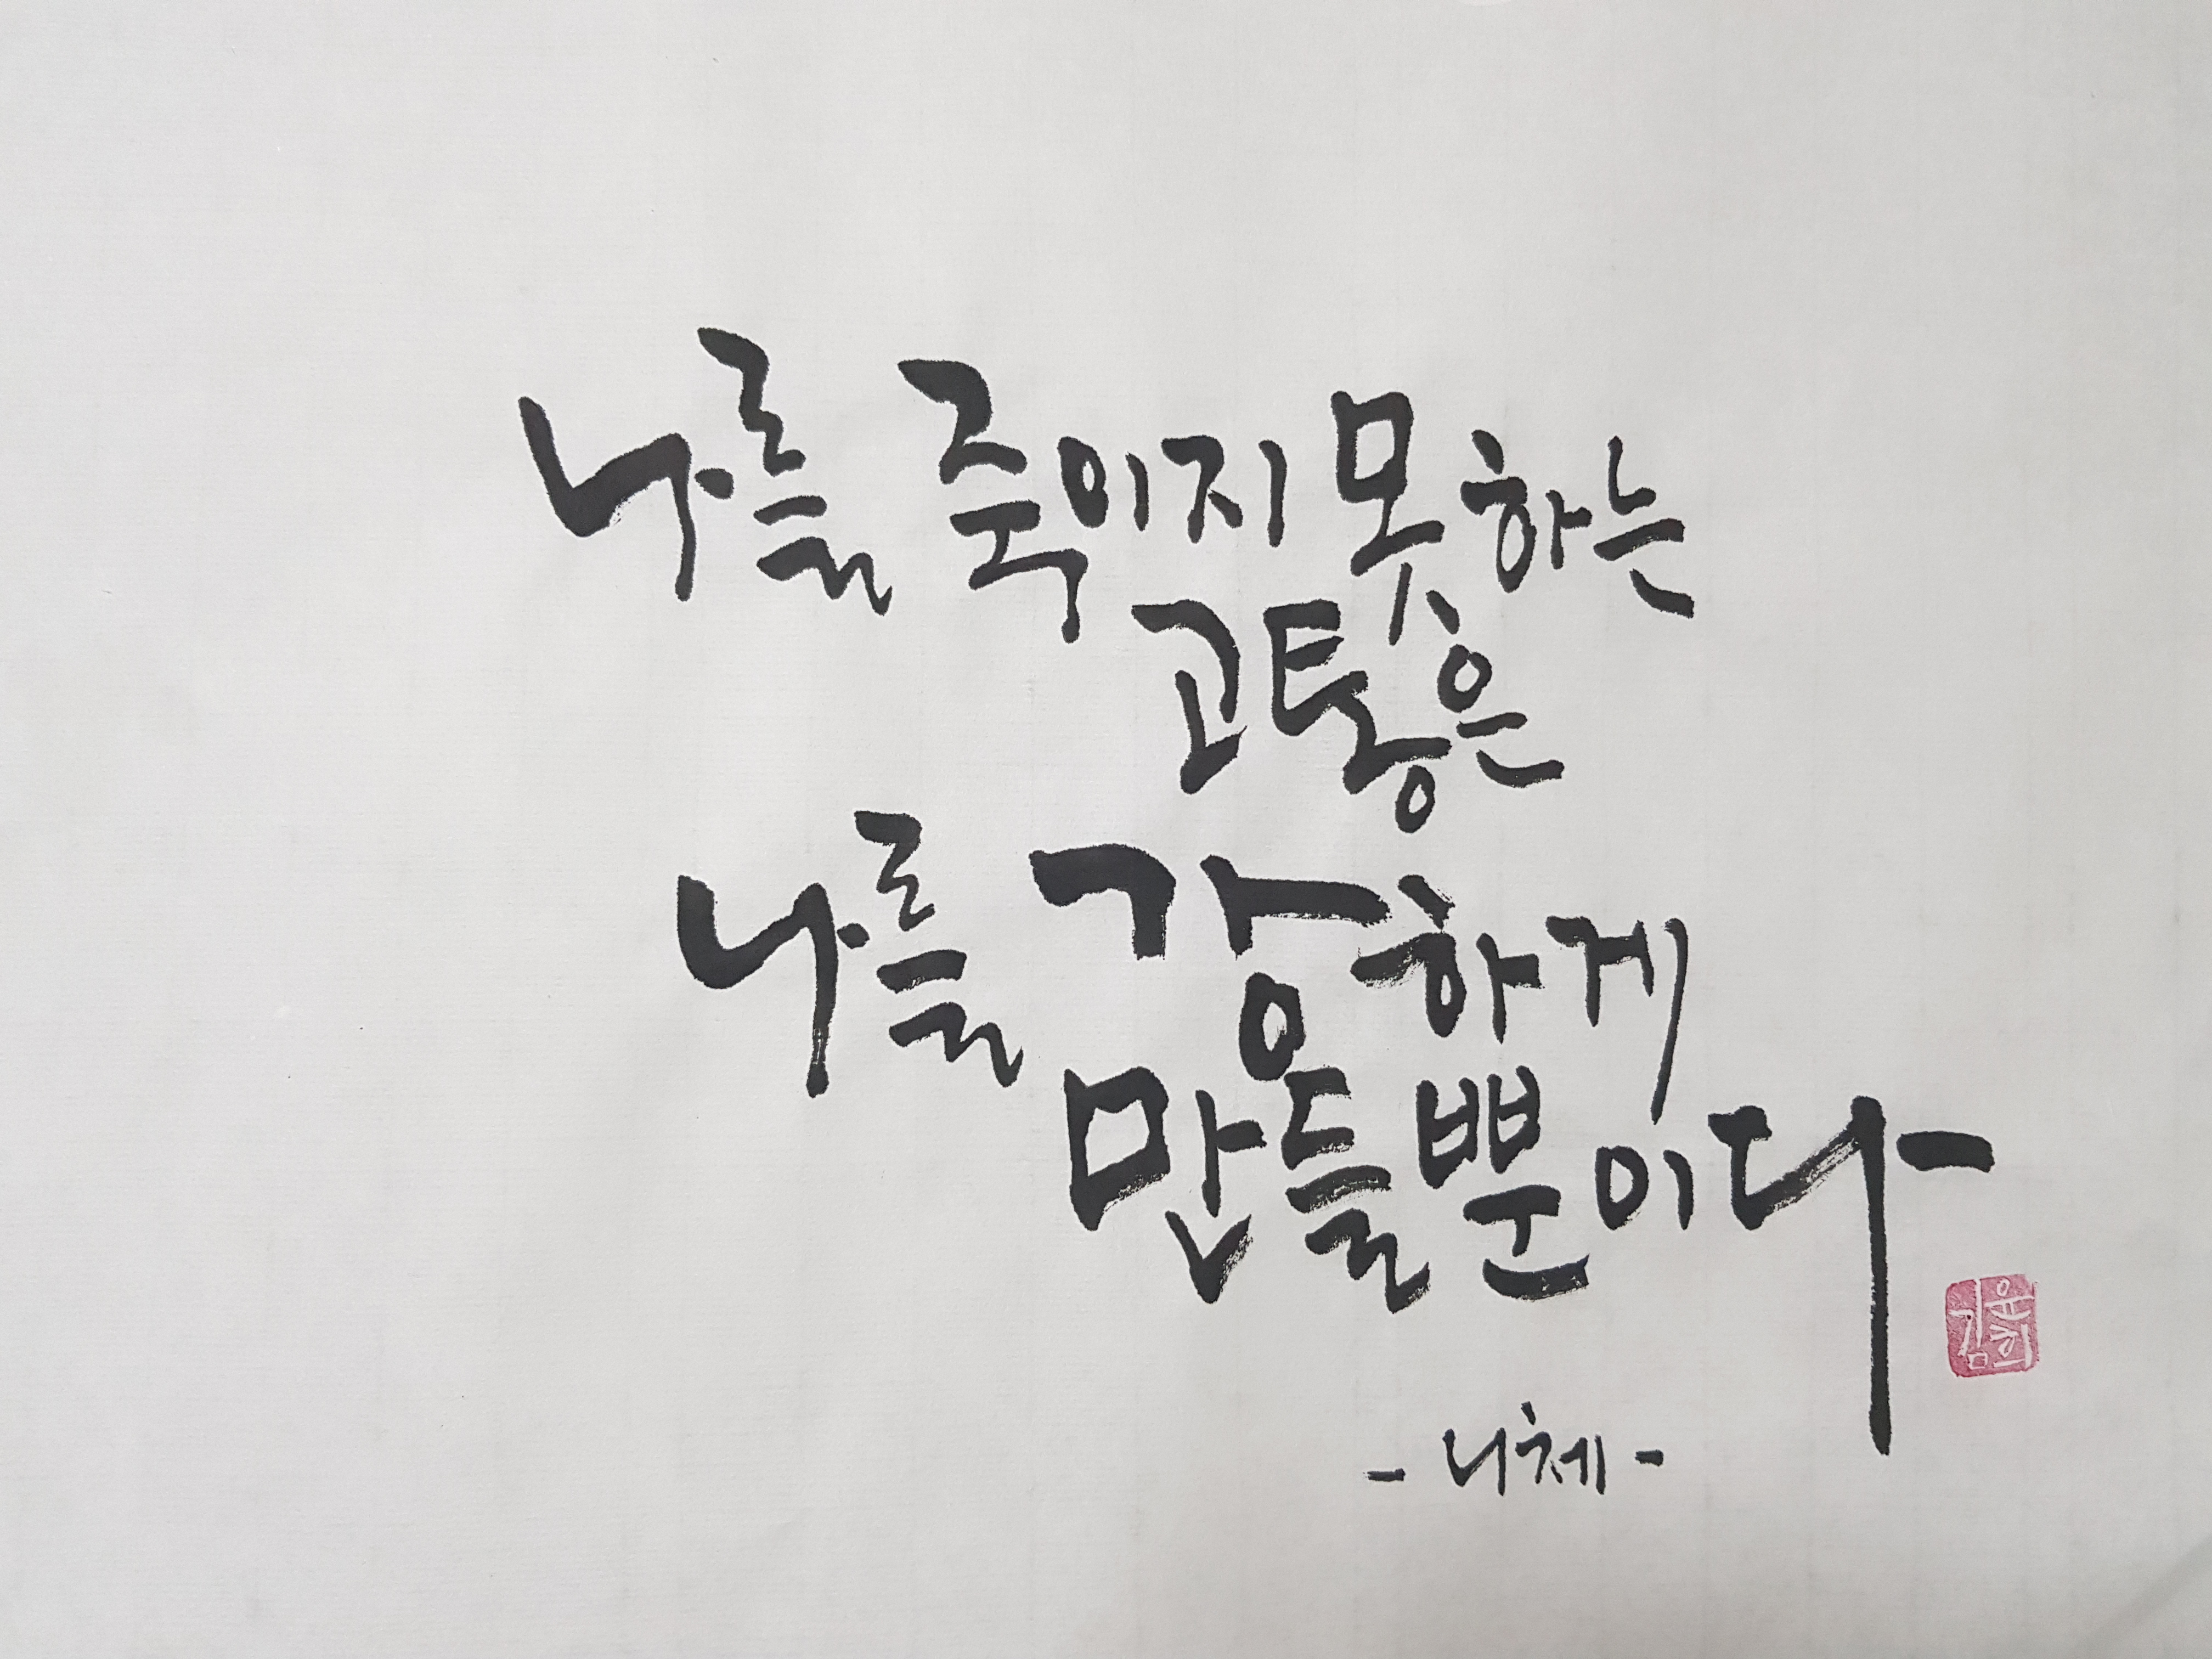 나를 죽이지 못하는
고통은
나를 강하게
만들 뿐이다
- 니체 -